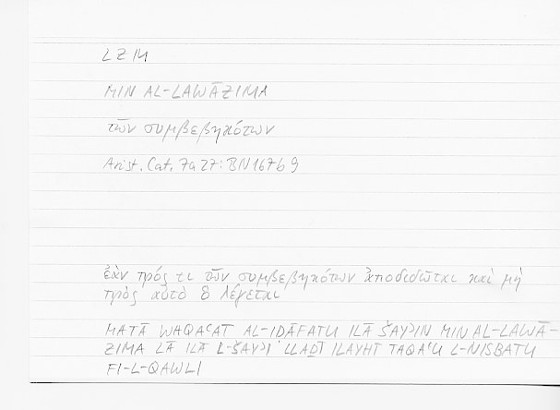 LZM
MIN AL-LAWĀZIMA
τῶν συμβεβηκότων
Arist. Cat. 7a27: BN167b9
ἐὰν πρός τι τῶν συμβεβηκότων ἀποδιδῶται καὶ μὴ
πρὸς αὐτὸ ὃ λέγεται
MATĀ WAQAʿAT AL-IDĀFATU ILĀ ŠAYʾIN MIN AL-LAWĀ-
ZIMA LĀ ILĀ L-ŠAYʾI ʾLLAḎĪ ILAYHI TAQAʿU L-NISBATU
FI-L-QAWLI